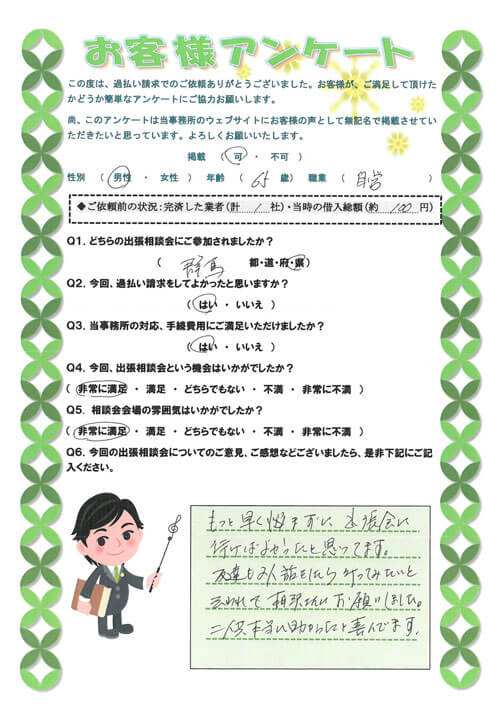 お客様アンケート
この度は、過払い請求でのご依頼ありがとうございました。お客様が、ご満足して頂けた
かどうか簡単なアンケートにご協力お願いします。
尚、このアンケートは当事務所のウェブサイトにお客様の声として無記名で掲載させてい
ただきたいと思っています。よろしくお願いいたします。
掲載 （ 可 ・ 不可 ）
性別 （ 男性 ・ 女性 ） 年齢 （ 65 歳） 職業 （ 自営 ）
◆ご依頼前の状況：完済した業者（計 1 社）・当時の借入総額（約 100 円）
Q1. どちらの出張相談会にご参加されましたか？
（ 群馬 都・道・府・県）
Q2. 今回、過払い請求をしてよかったと思いますか？
（ はい ・ いいえ ）
Q3. 当事務所の対応、手続費用にご満足いただけましたか？
（ はい ・ いいえ ）
Q4. 今回、出張相談会という機会はいかがでしたか？
（ 非常に満足 ・ 満足 ・ どちらでもない ・ 不満 ・ 非常に不満 ）
Q5. 相談会会場の雰囲気はいかがでしたか？
（ 非常に満足 ・ 満足 ・ どちらでもない ・ 不満 ・ 非常に不満 ）
Q6. 今回の出張相談会についてのご意見、ご感想などございましたら、是非下記にご記
入ください。
もっと早く悩まずに 出張会に
行けばよかったと思ってます。
友達も 話をしたら 行ってみたいと
言われて 相沢さんに お願いしました。
二人共本当に助かったと喜んでます。